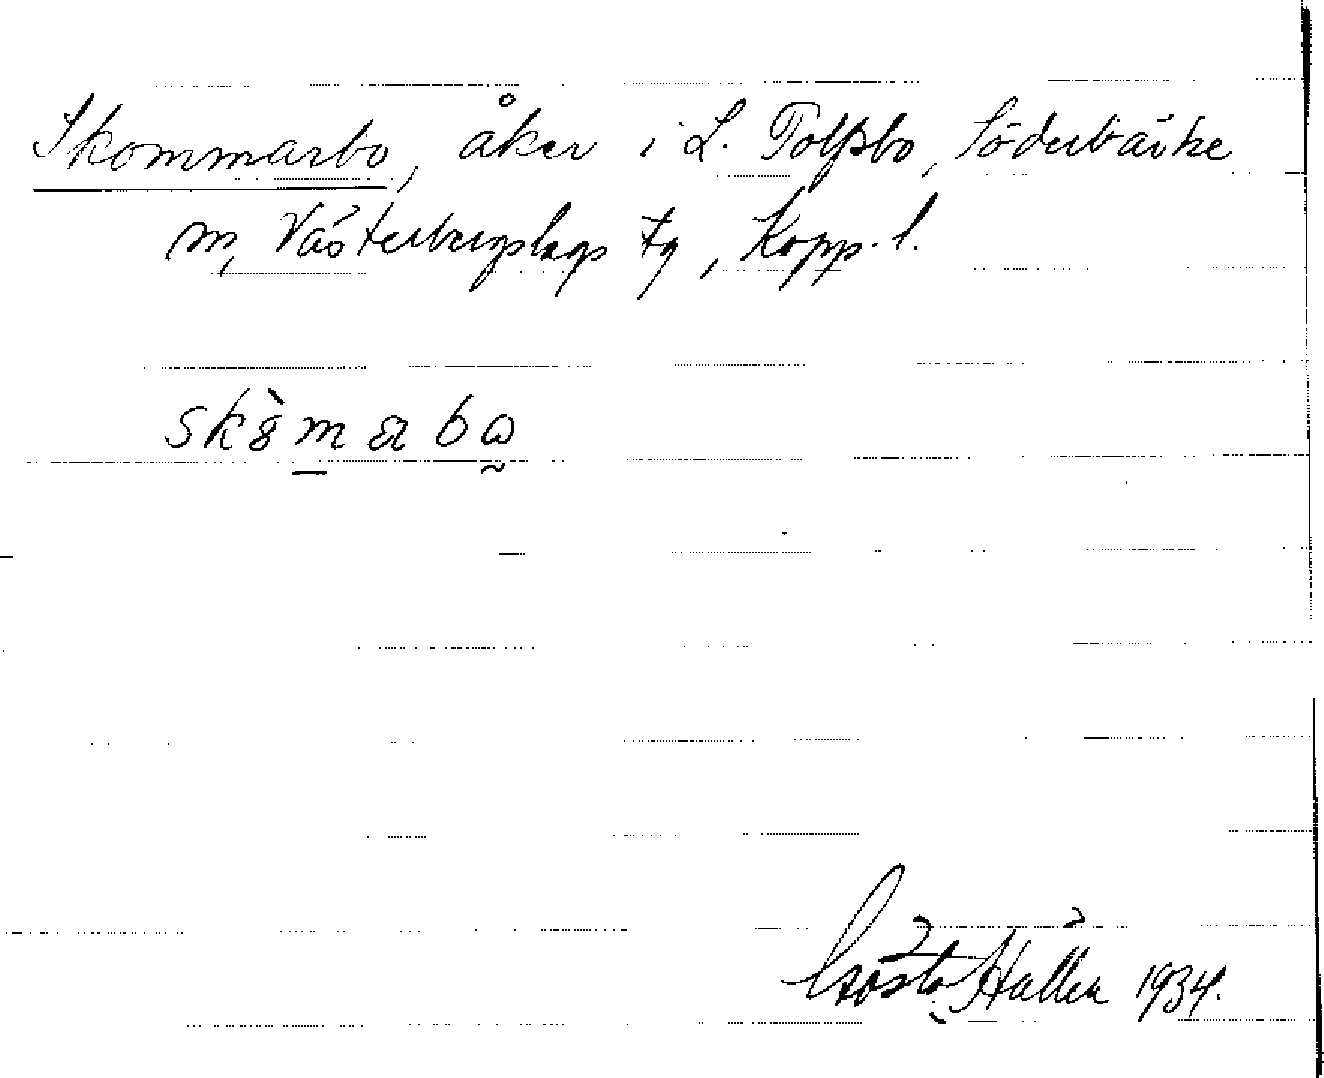 Skommarbo, åker i L. Tolfsbo, Söderbärke
sn, Västerbergslags tg, Kopp. l.
Gösta Hallén 1934.